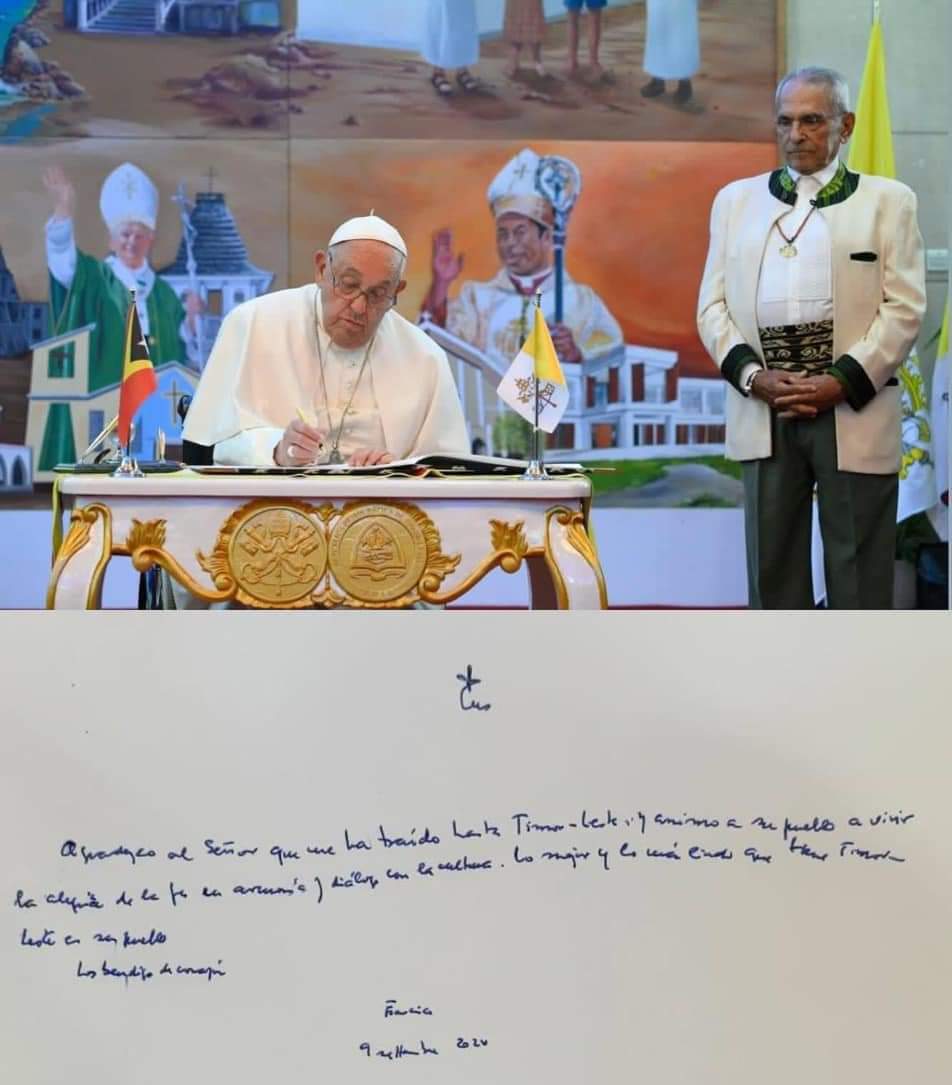 Agradezco al Señor que me ha traído hasta Timor-Leste; y animo a su pueblo a vivir
la alegría de la fe en armonía y diálogo con la cultura. Lo mejor y lo más lindo que tiene Timor-
Leste es su pueblo
Los bendigo de corazón
Francisco
9 settembre 2024